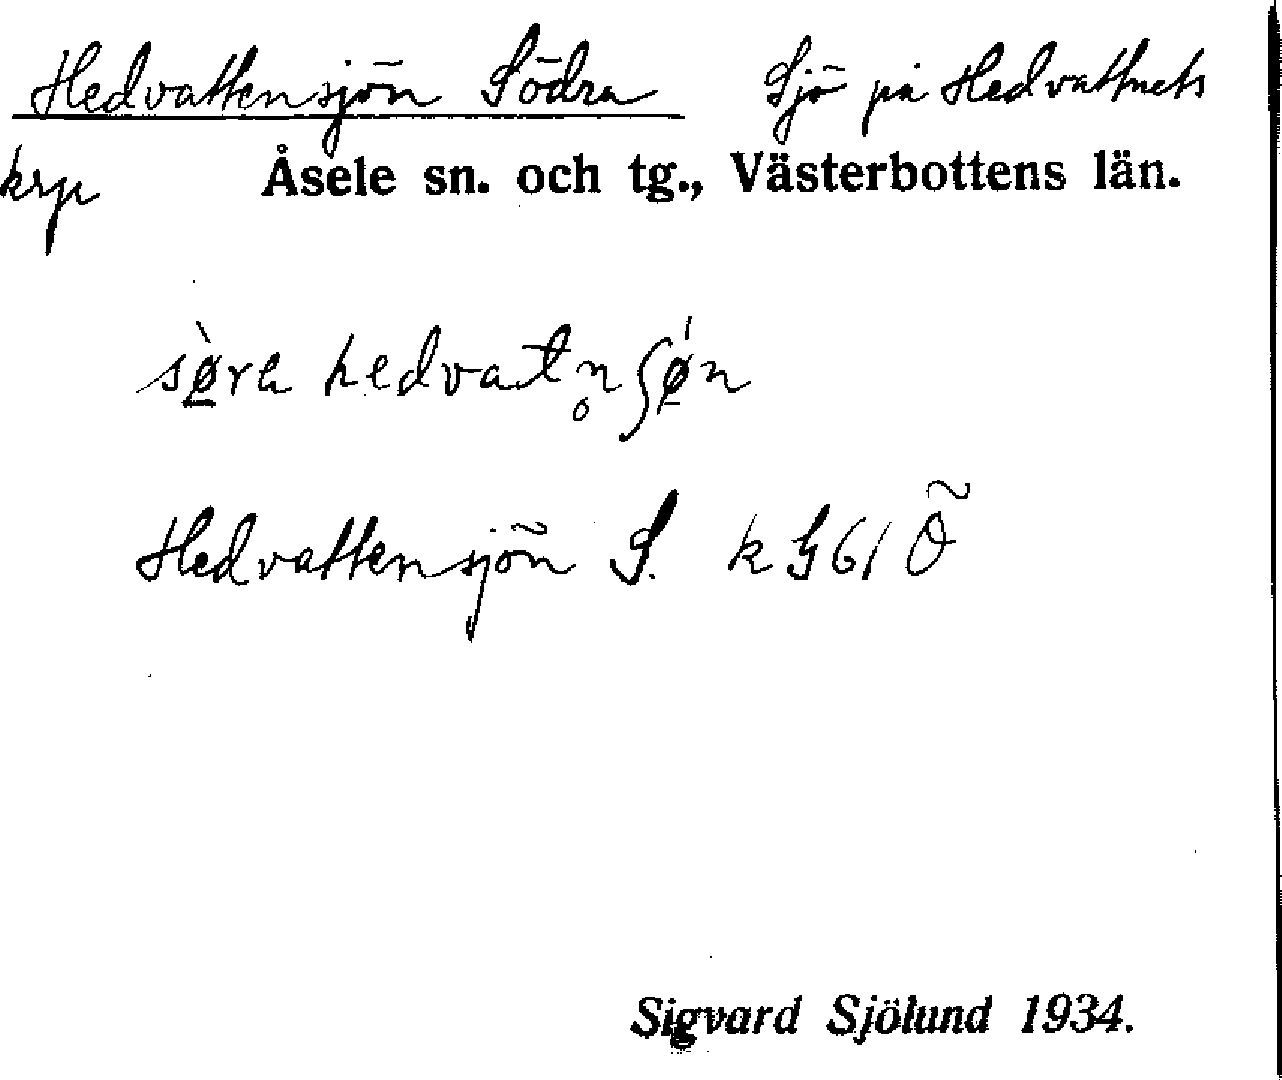 Hedvattensjön Södra Sjö på Hedvattnets
krp Åsele sn. och tg., Västerbottens län.
sø̀ra hedvatn̥ ʃǿn
Hedvattensjön S. k G61 Ö
Sigvard Sjölund 1934.